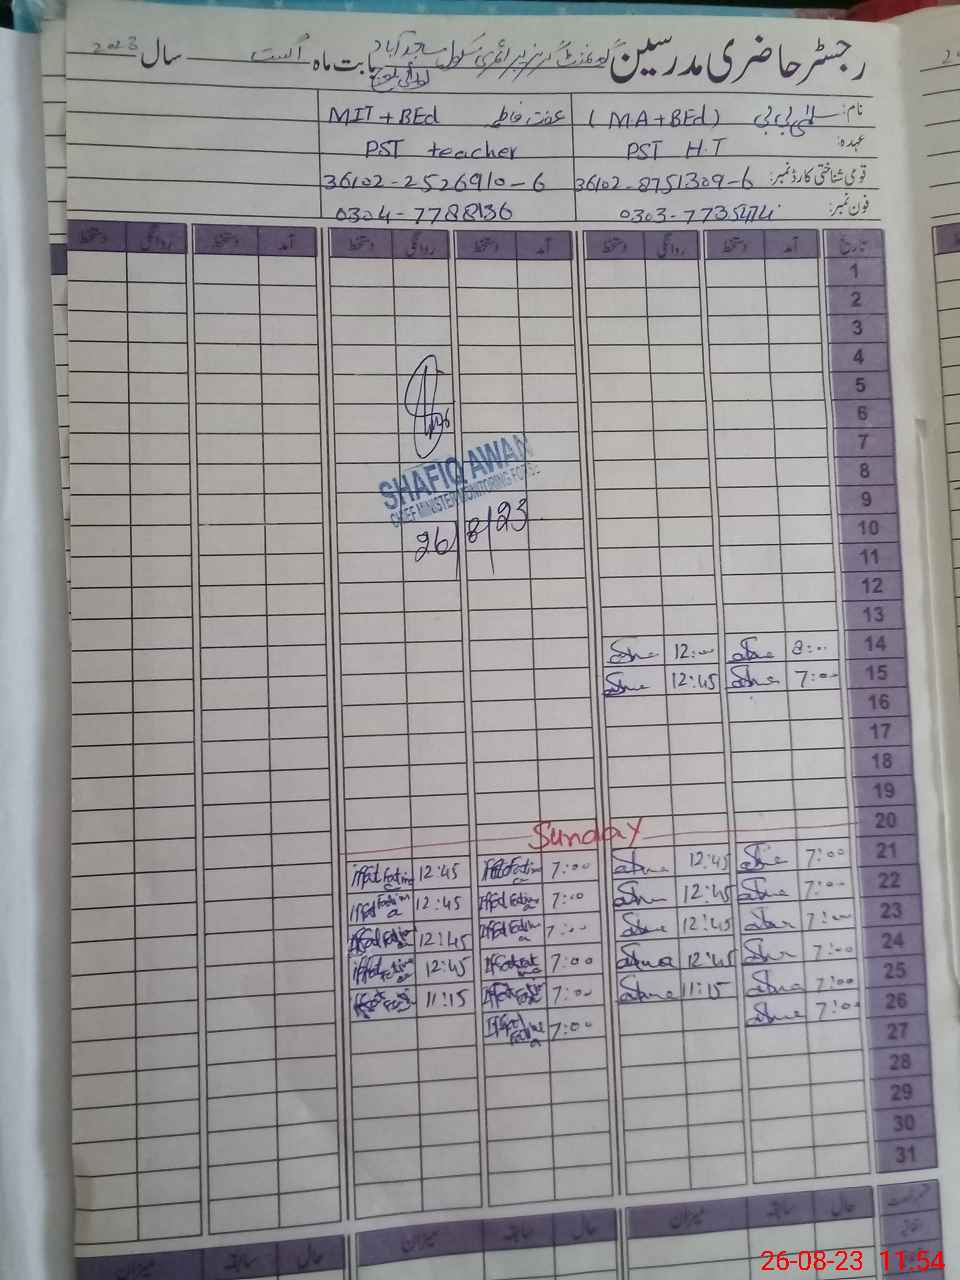 رجسٹر حاضری مدرسین گورنمنٹ گرلز پرائمری سکول بابت ماہ اگست سال 2023
نام: بی بی (MA+BEd) عفت فاطمہ MIT+BEd
عہدہ: PST H.T PST teacher
قومی شناختی کارڈ نمبر: 36102-8751309-6 36102-2526910-6
فون نمبر: 0303-7735474 0304-7788136
تاریخ آمد دستخط روانگی دستخط آمد دستخط روانگی دستخط آمد دستخط روانگی دستخط
1
2
3
4
5
6
7
8
SHAFIQ AWAN
CHIEF MINISTER MONITORING FORCE
9
10
26/8/23
11
12
13
14 8:00 12:00
15 7:00 12:45
16
17
18
19
20
Sunday
21 7:00 12:45 7:00 Iffat Fatima 12:45 Iffat Fatima
22 7:00 12:45 7:00 Iffat Fatima 12:45 Iffat Fatima
23 7:00 12:45 7:00 Iffat Fatima 12:45 Iffat Fatima
24 7:00 12:45 7:00 Iffat Fatima 12:45 Iffat Fatima
25 7:00 11:15 7:00 11:15
26 7:00 7:00 Iffat Fatima
27
28
29
30
31
حال سابقہ میزان حال سابقہ میزان حال سابقہ
26-08-23 11:54